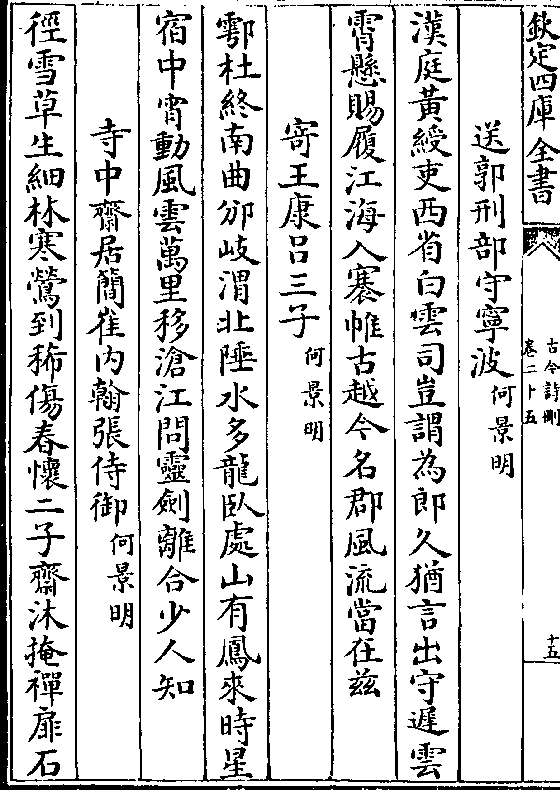 欽定四庫全書
古今詩刪
卷二十五
十五
送郭刑部守寧波何景明
漢庭黃綬吏西省白雲司豈謂為郎久猶言出守遲雲
霄懸賜履江海入褰帷古越今名郡風流當在兹
寄王康呂三子何景明
鄠杜終南曲邠岐渭北陲水多龍臥處山有鳳來時星
宿中宵動風雲萬里移滄江問靈劍離合少人知
寺中齋居簡崔内翰張侍御何景明
徑雪草生細林寒鶯到稀傷春懷二子齋沐掩禪扉石